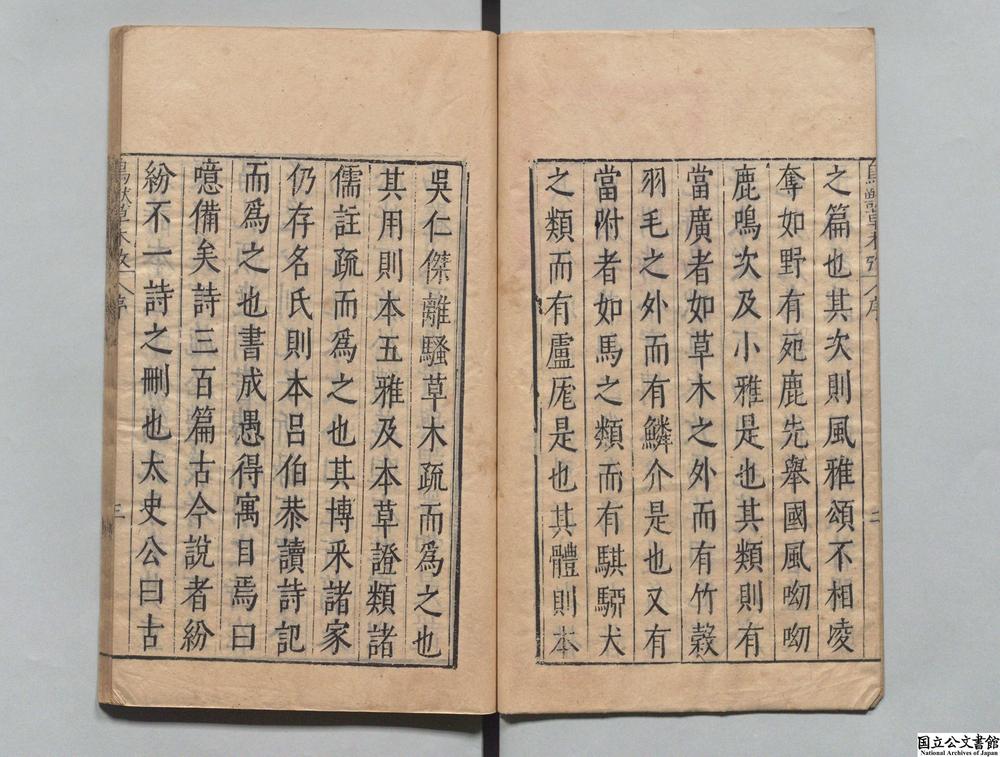 之篇也其次則風雅頌不相凌
奪如野有死鹿先舉國風呦呦
鹿鳴次及小雅是也其類則有
當廣者如草木之外而有竹穀
羽毛之外而有鱗介是也又有
當附者如馬之類而有騏驔犬
之類而有盧厖是也其體則本
吳仁傑離騷草木疏而爲之也
其用則本五雅及本草證類諸
儒註疏而爲之也其博采諸家
仍存名氏則本呂伯恭讀詩記
而爲之也書成愚得寓目焉曰
噫備矣詩三百篇古今說者紛
紛不一詩之刪也太史公曰古
三
国立公文書館
National Archives of Japan